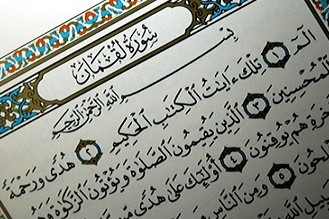 سُورَةُ لُقْمَانَ
بِسْمِ ٱللَّهِ ٱلرَّحْمَٰنِ ٱلرَّحِيمِ
الٓمٓ ١ تِلْكَ ءَايَٰتُ ٱلْكِتَٰبِ ٱلْحَكِيمِ ٢ هُدًى وَرَحْمَةً
لِّلْمُحْسِنِينَ ٣ ٱلَّذِينَ يُقِيمُونَ ٱلصَّلَوٰةَ وَيُؤْتُونَ ٱلزَّكَوٰةَ
هُمْ يُوقِنُونَ ٤ أُو۟لَٰٓئِكَ عَلَىٰ هُدًى مِّن
وَمِنَ ٱلنَّاسِ